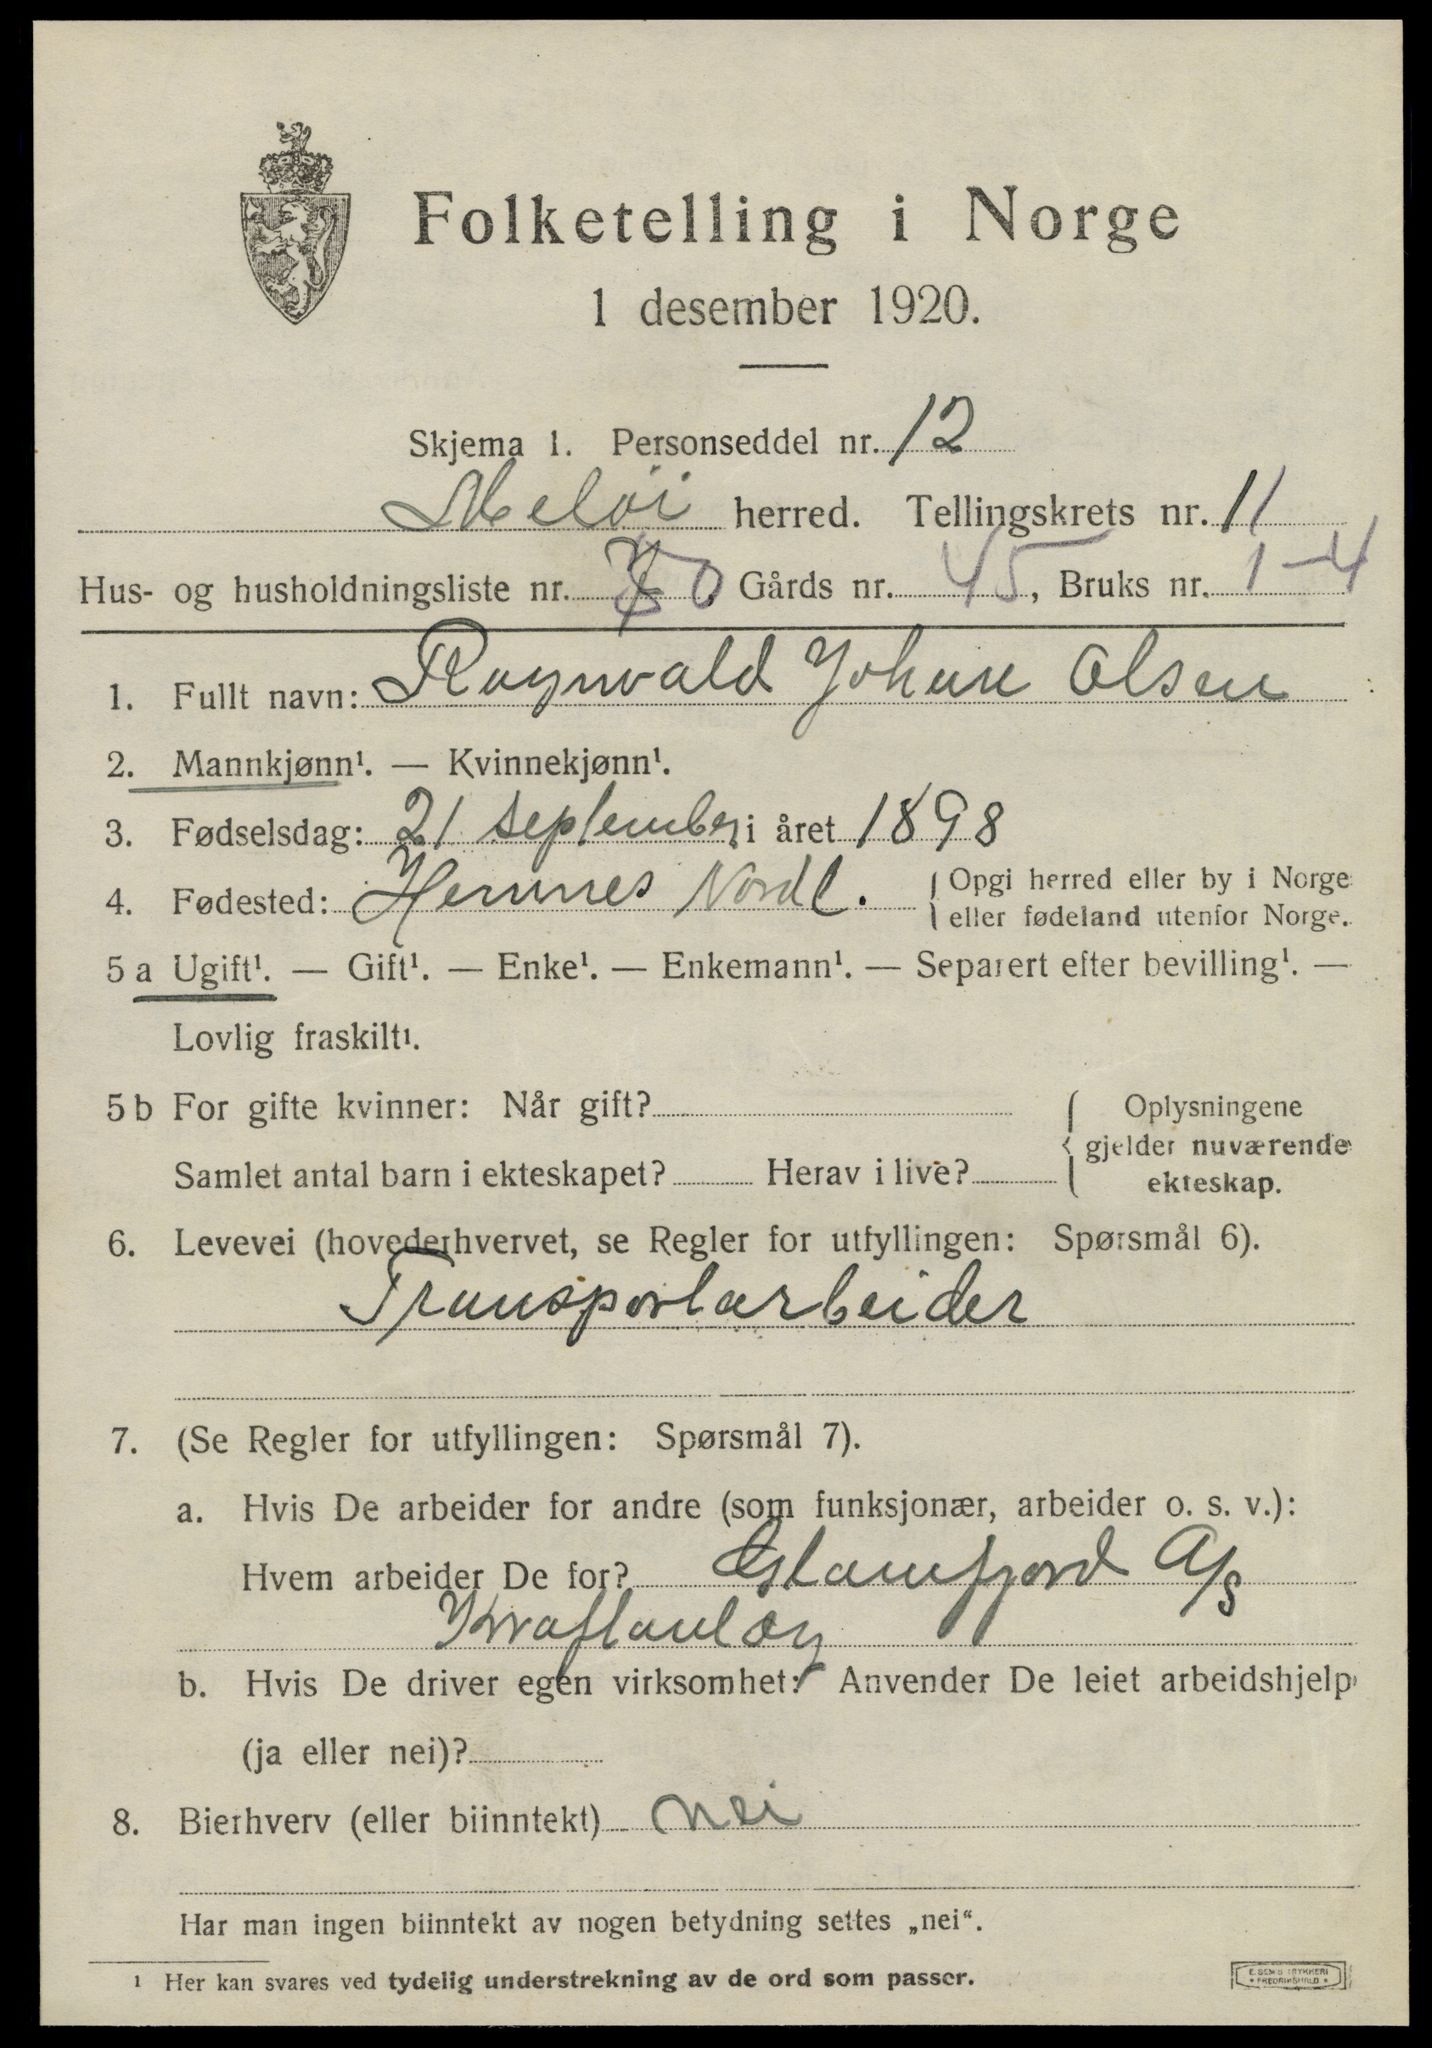 Folketelling i Norge
1 desember 1920.
Skjema 1. Personseddel nr. 12
Meløi herred. Tellingskrets nr. 11
Hus- og husholdningsliste nr. , Gårds nr. 45, Bruks nr. 1-4
1. Fullt navn: Raynvald Johan Olsen
2. Mannkjønn¹. — Kvinnekjønn¹.
3. Fødselsdag: 21 september i året 1898
4. Fødested: Hemnes Nordl. { Opgi herred eller by i Norge
eller fødeland utenfor Norge.
5 a Ugift¹. — Gift¹. — Enke¹. — Enkemann¹. — Separert efter bevilling¹. —
Lovlig fraskilt¹.
5 b For gifte kvinner: Når gift? { Oplysningene
gjelder nuværende
Samlet antal barn i ekteskapet? Herav i live? ekteskap.
6. Levevei (hovederhvervet, se Regler for utfyllingen: Spørsmål 6).
Transportarbeider
7. (Se Regler for utfyllingen: Spørsmål 7).
a. Hvis De arbeider for andre (som funksjonær, arbeider o. s. v.):
Hvem arbeider De for? Glamfjord A/S
Kraftanlæg
b. Hvis De driver egen virksomhet: Anvender De leiet arbeidshjelp
(ja eller nei)?
8. Bierhverv (eller biinntekt) nei
Har man ingen biinntekt av nogen betydning settes „nei“.
¹ Her kan svares ved tydelig understrekning av de ord som passer.
E. SEM'S TRYKKERI
• FREDRIKSHALD •